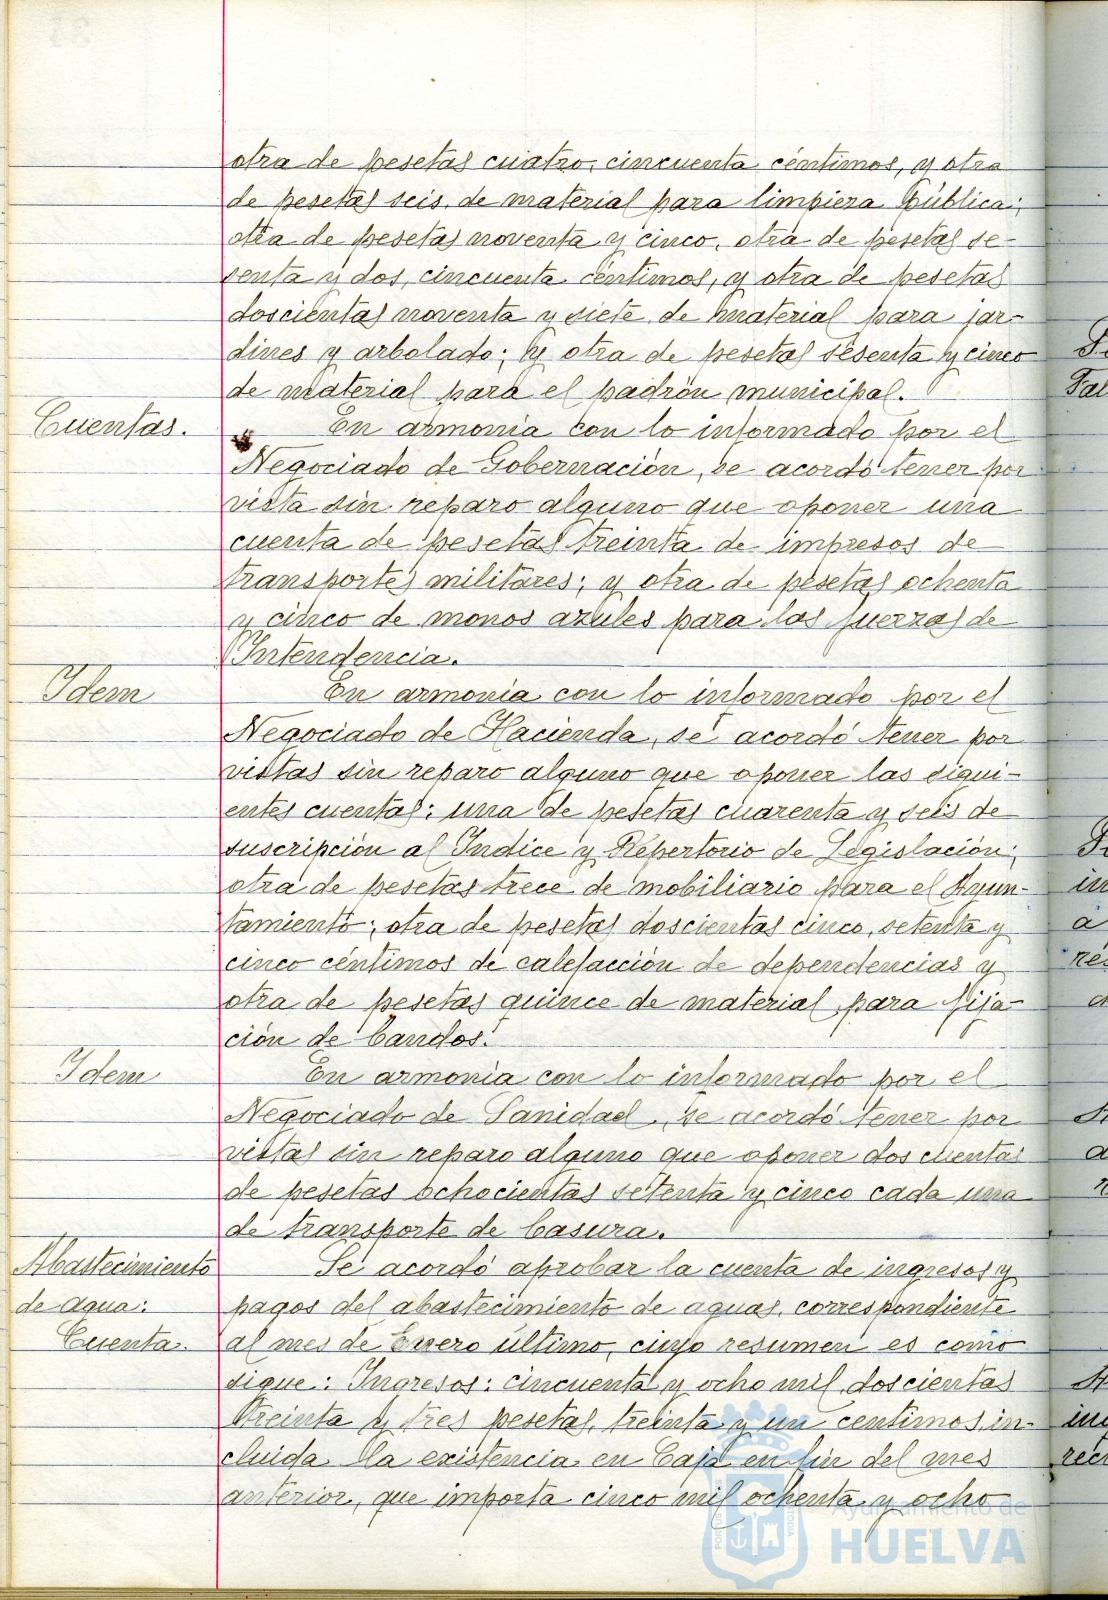 otra de pesetas cuatro, cincuenta céntimos, y otra
de pesetas seis, de material para limpieza pública;
otra de pesetas noventa y cinco, otra de pesetas se-
senta y dos, cincuenta céntimos, y otra de pesetas
doscientas noventa y siete, de material para jar-
dines y arbolado; y otra de pesetas sesenta y cinco
de material para el padrón municipal.
Cuentas. En armonía con lo informado por el
Negociado de Gobernación, se acordó tener por
vista sin reparo alguno que oponer una
cuenta de pesetas treinta de impresos de
transportes militares; y otra de pesetas ochenta
y cinco de monos azules para las fuerzas de
Intendencia.
Idem En armonía con lo informado por el
Negociado de Hacienda, se acordó tener por
vistas sin reparo alguno que oponer las sigui-
entes cuentas: una de pesetas cuarenta y seis de
suscripción al Indice y Repertorio de Legislación;
otra de pesetas trece de mobiliario para el Ayun-
tamiento; otra de pesetas doscientas cinco, setenta y
cinco céntimos de calefacción de dependencias y
otra de pesetas quince de material para fija-
ción de bandos.
Idem En armonía con lo informado por el
Negociado de Sanidad, se acordó tener por
vistas sin reparo alguno que oponer dos cuentas
de pesetas ochocientas setenta y cinco cada una
de transporte de basura.
Abastecimiento Se acordó aprobar la cuenta de ingresos y
de agua: pagos del abastecimiento de aguas, correspondiente
Cuenta. al mes de Enero último, cuyo resumen es como
sigue: Ingresos: cincuenta y ocho mil doscientas
treinta y tres pesetas, treinta y un centimos, in-
cluida la existencia en Caja en fin del mes
anterior, que importa cinco mil ochenta y ocho
Ayuntamiento de
HUELVA